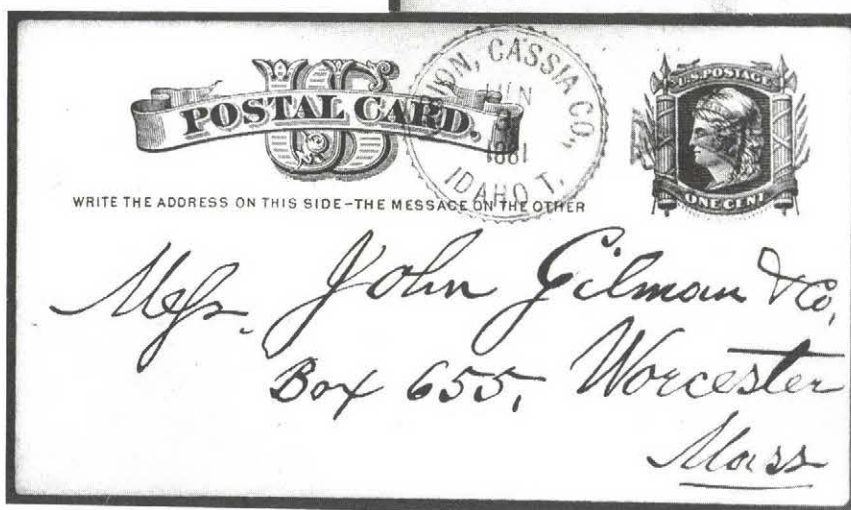 US
POSTAL CARD.
CASSIA CO.,
1881
IDAHO T.
U.S. POSTAGE
ONE CENT
WRITE THE ADDRESS ON THIS SIDE–THE MESSAGE ON THE OTHER
Messr. John Gilman & Co,
Box 655, Worcester
Mass